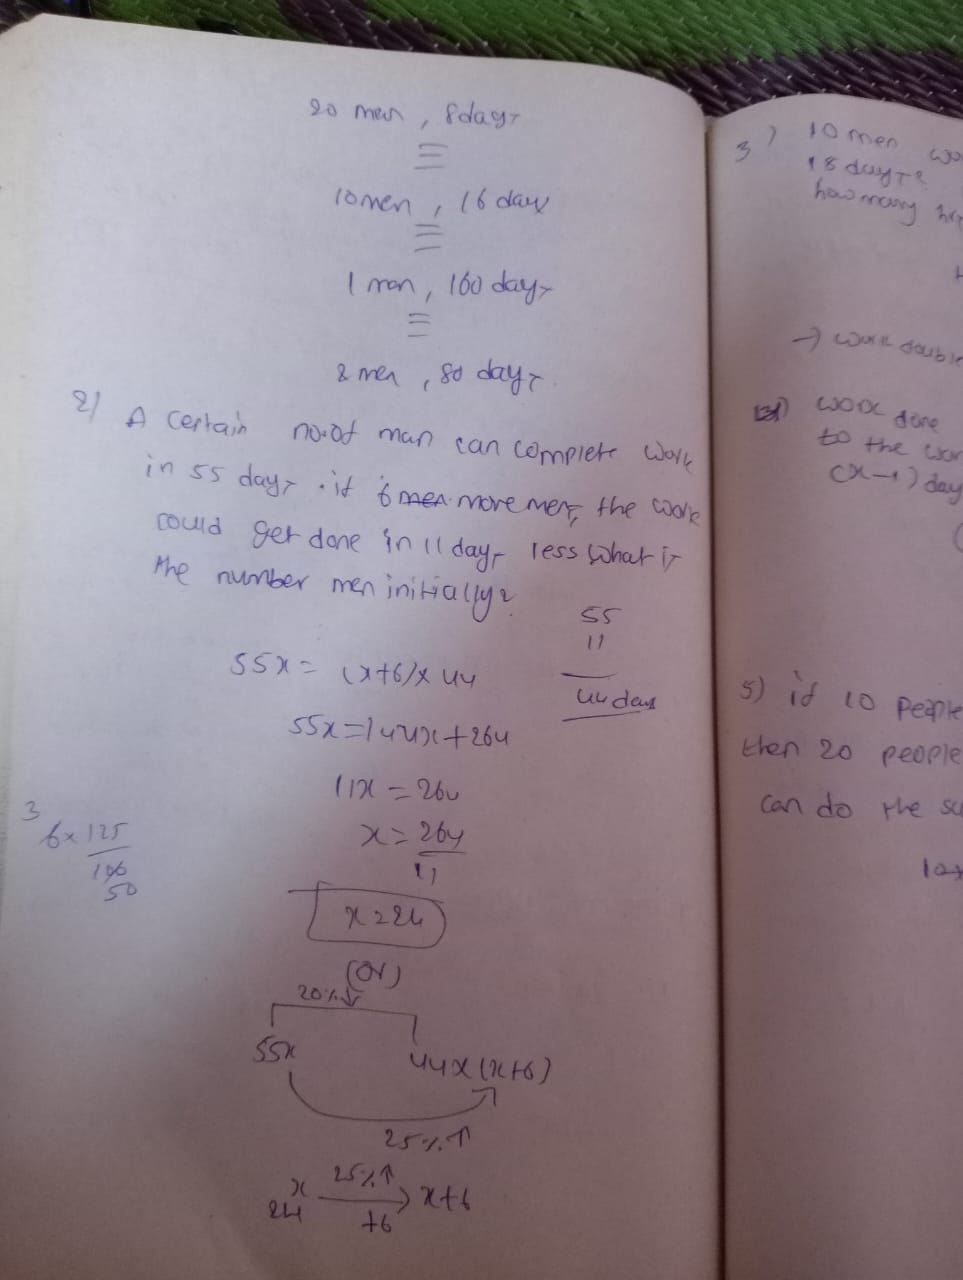 20 men, 8 days
≡
10 men, 16 days
≡
1 man, 160 days
≡
2 men, 80 days
2) A certain no.of man can complete work
in 55 days. if 6 men more men, the work
could get done in 11 days less what is
the number men initially?
55
11
44 days
55x = (x+6)x 44
55x = 44x + 264
11x = 264
x = 264
11
x = 24
(or)
3
6x 125
100
50
20%↓
55x
44x(x+6)
25%↑
x 25%↑ x+6
24 +6
3) 10 men
18 days
how many
→ work double
work done
to the
(x-1) day
5) if 10 people
then 20 people
can do the